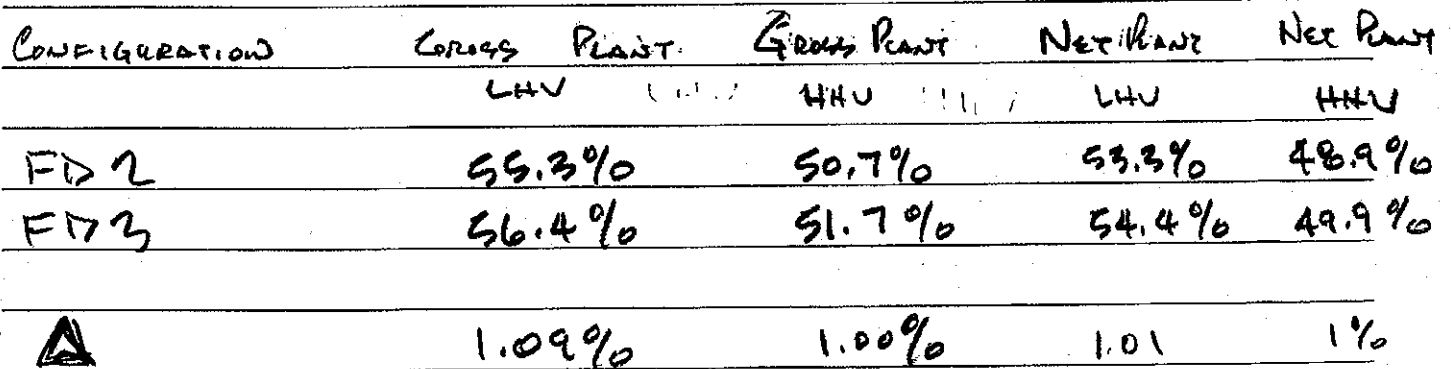 CONFIGURATION GROSS PLANT GROSS PLANT NET PLANT NET PLANT
LHV HHV LHV HHV
FD2 55.3% 50.7% 53.3% 48.9%
FD3 56.4% 51.7% 54.4% 49.9%
Δ 1.09% 1.00% 1.01 1%